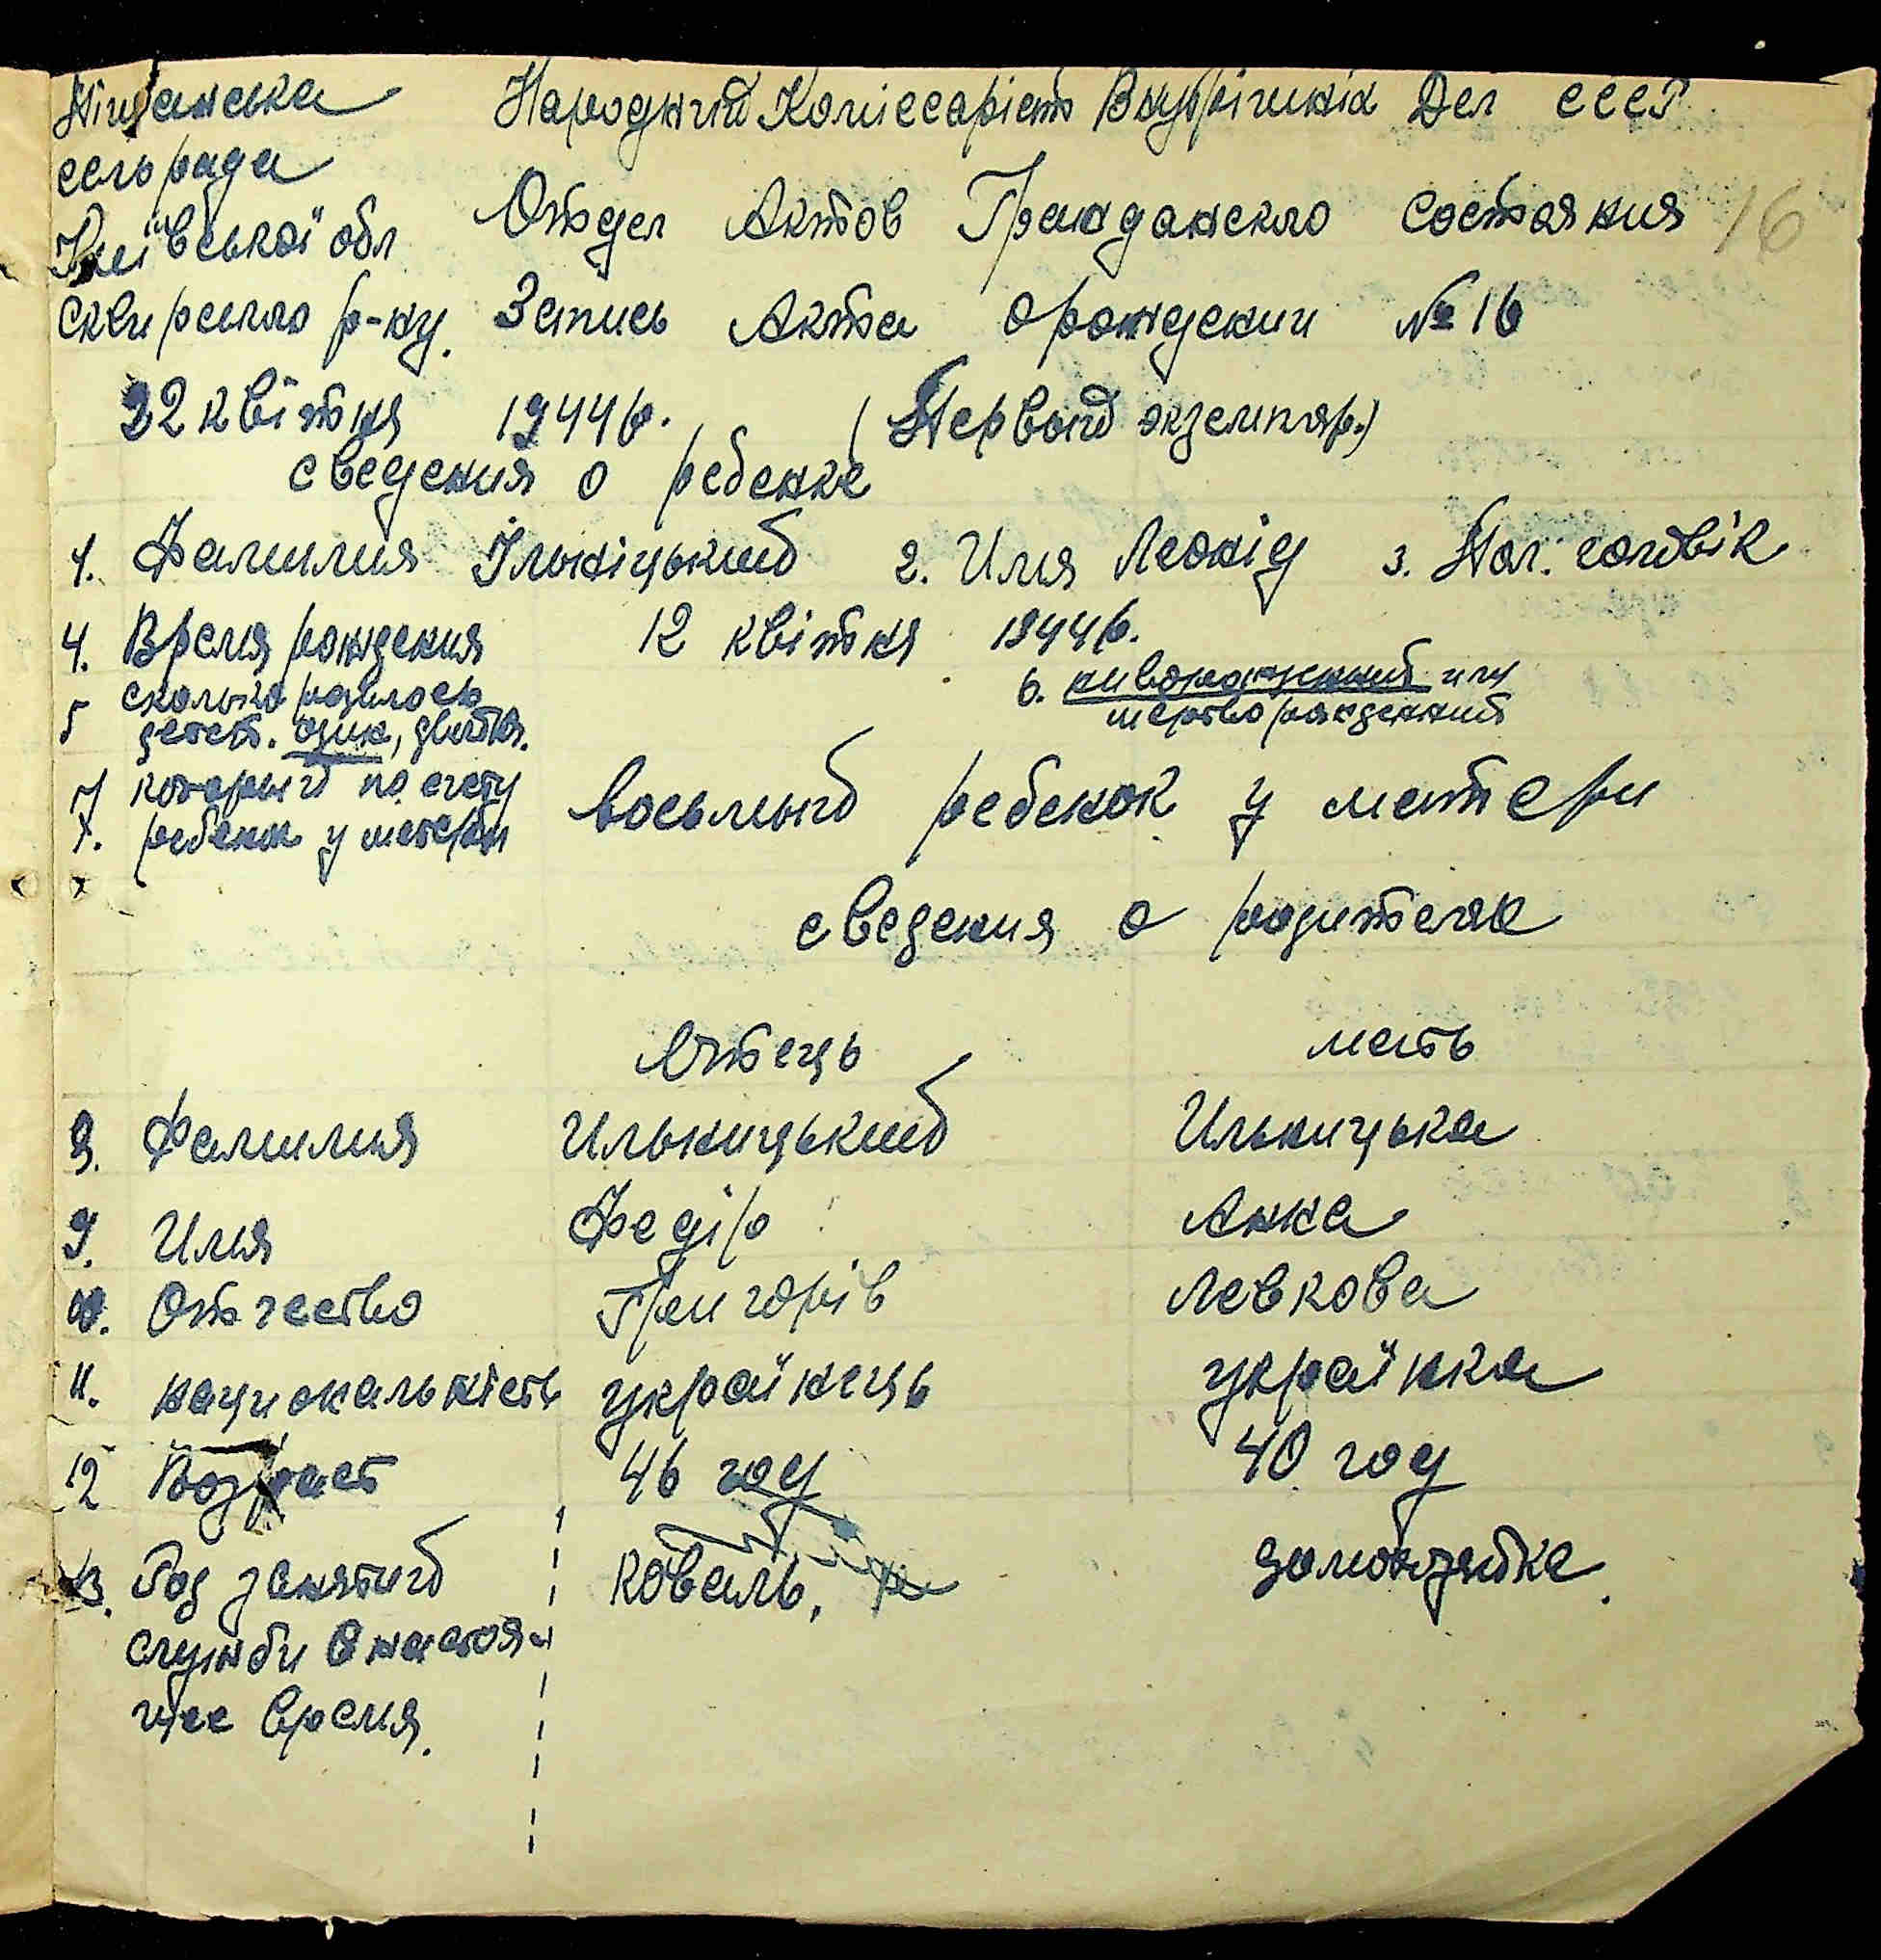 сельрада
Київської обл
Сквирского р-ну.
Народний Коміссаріат Внутрішніх Дел СССР
Отдел Актов Гражданского Состояния 16
Запись Акта о рождении № 16
22 квітня 1944 р. (Первый экземпляр.)
сведения о ребенке
1. Фамилия Ільніцький 2. Имя Леонід 3. Пол. чоловік
4. Время рождения 12 квітня 1944 р.
5 сколько родилось
детей. один, двойня.
6. живорожденный или
мертворожденний
7 который по счету
7. ребенок у матери восьмый ребенок у матери
сведения о родителях
Отець мать
8. Фамилия Ильницький Ильницька
9. Имя Федір Анна
10. Отчество Григорів Левкова
11. национальність українець українка
12 Возраст 46 год 40 год
13. Род занятий коваль, домохозяйка.
служби в настоя-
щее время.